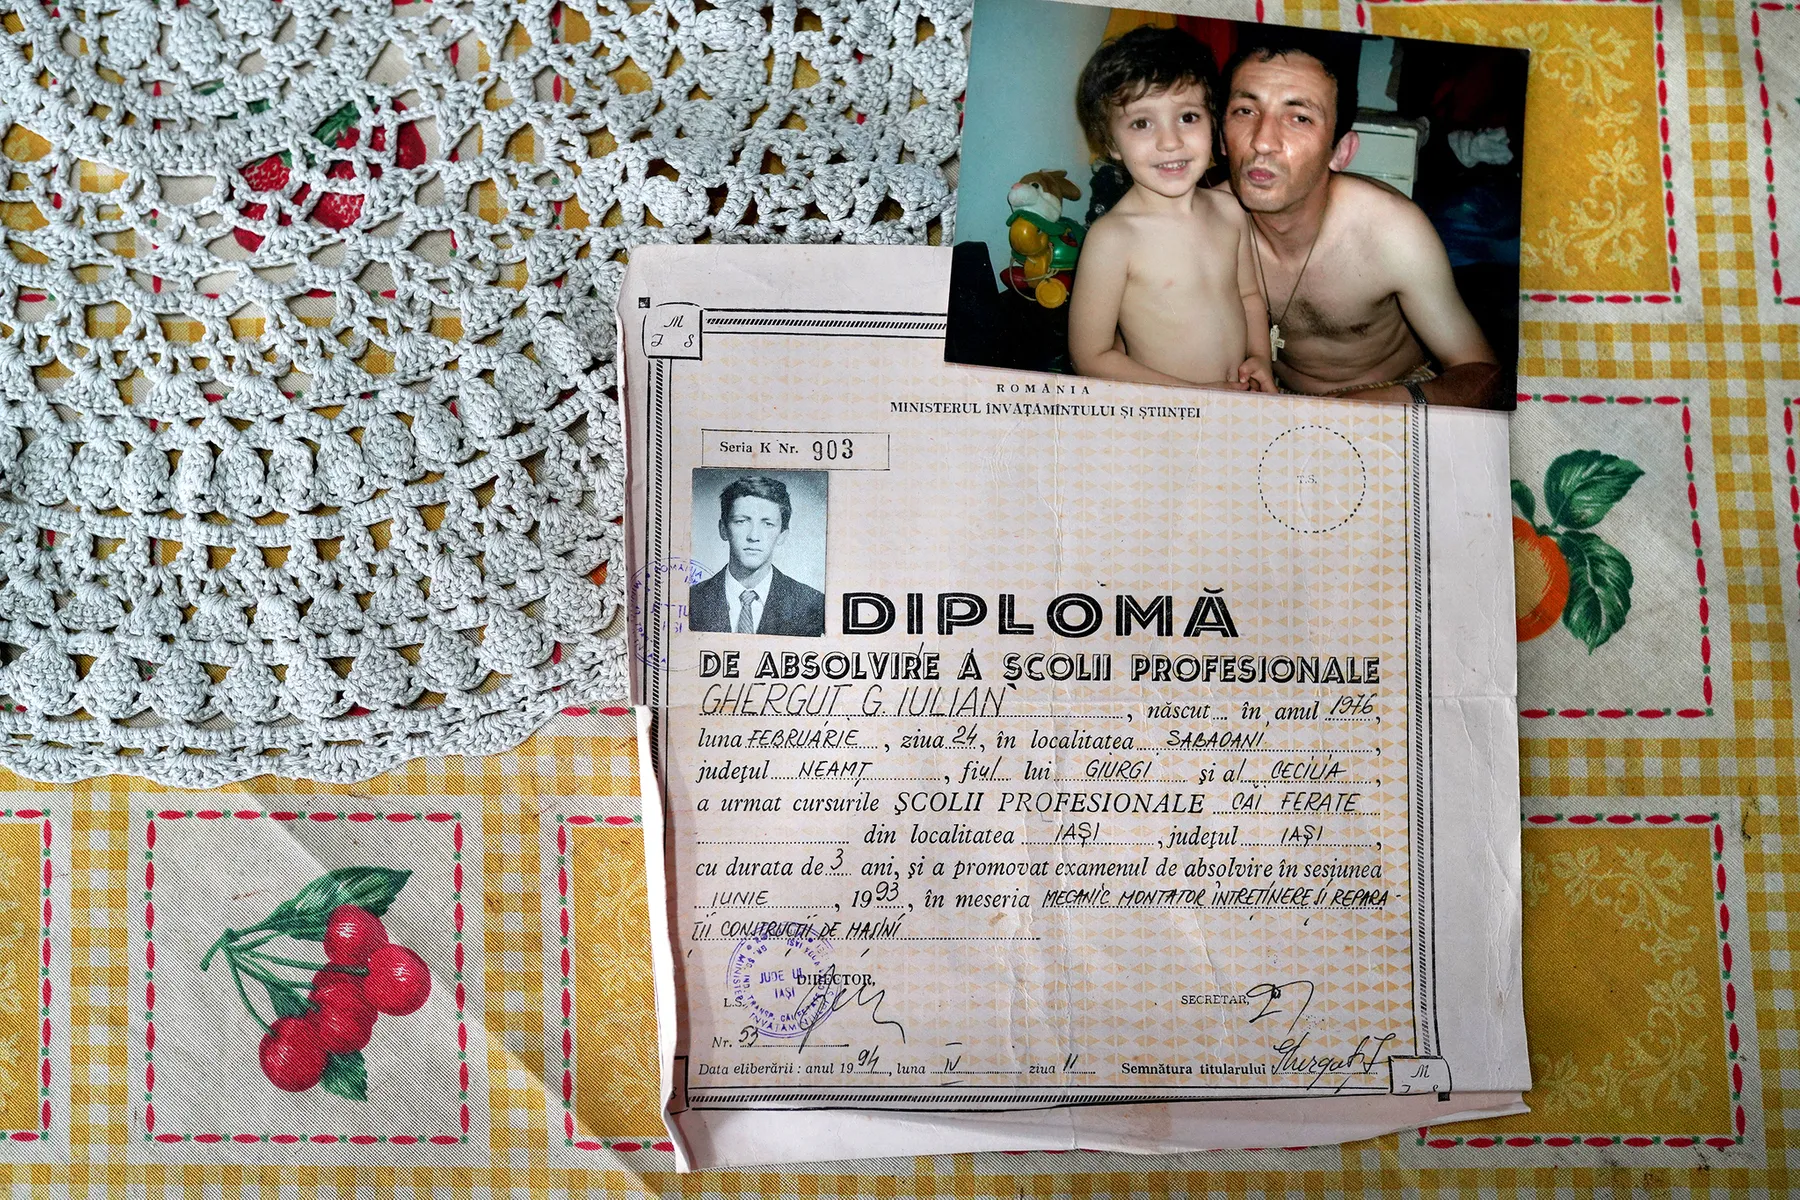 M
I S
ROMÂNIA
MINISTERUL ÎNVĂŢĂMÎNTULUI ŞI ŞTIINŢEI
Seria K Nr. 903
T.S.
DIPLOMĂ
DE ABSOLVIRE A ŞCOLII PROFESIONALE
GHERGUŢ G. IULIAN, născut în anul 1976,
luna FEBRUARIE, ziua 24, în localitatea SABAOANI,
judeţul NEAMŢ, fiul lui GIURGI şi al CECILIA,
a urmat cursurile ŞCOLII PROFESIONALE CĂI FERATE
din localitatea IAŞI, judeţul IAŞI,
cu durata de 3 ani, şi a promovat examenul de absolvire în sesiunea
IUNIE, 1993, în meseria MECANIC MONTATOR ÎNTREŢINERE ŞI REPARA-
ŢII CONSTRUCŢII DE MAŞINI
JUDEŢUL
IAŞI
DIRECTOR,
L.S.
SECRETAR,
Nr. 53
Data eliberării: anul 1994, luna IV ziua 11 Semnătura titularului Ghergut I
M